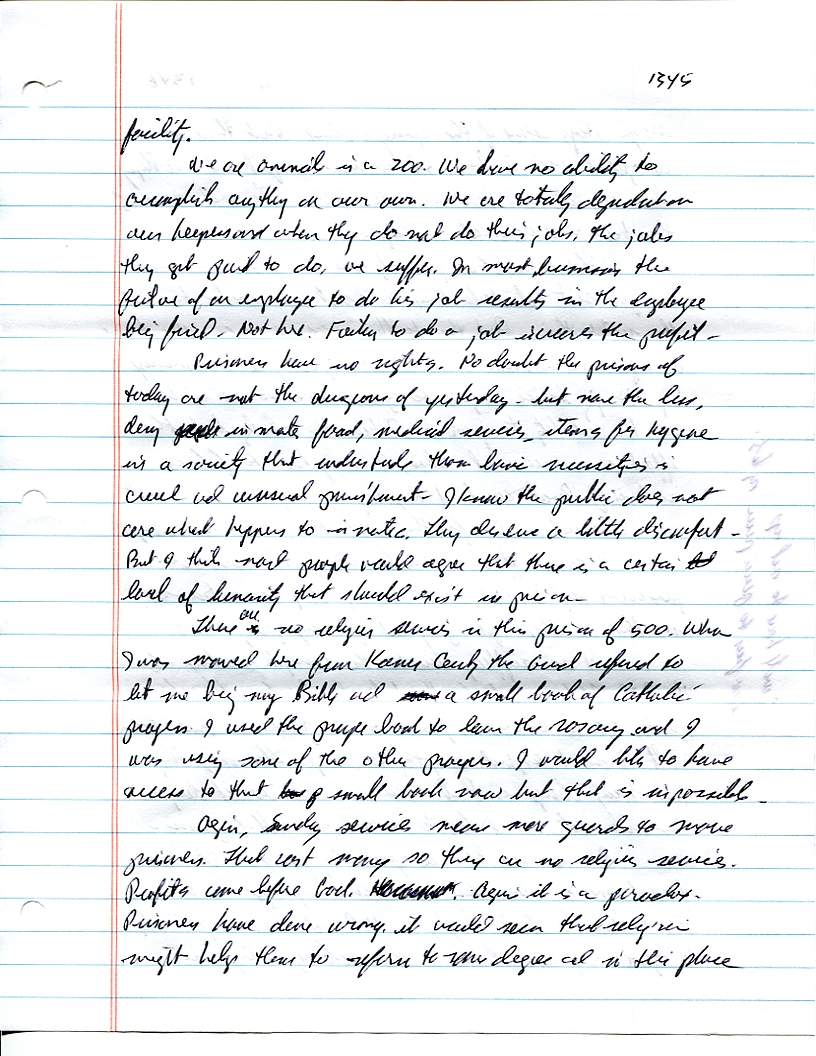 1345
facility.
We are animals in a zoo. We have no ability to
accomplish anything on our own. We are totally dependent on
our keepers and when they do not do their jobs, the jobs
they get paid to do, we suffer. In most businesses the
failure of an employee to do his job results in the employee
being fired. Not here. Failing to do a job increases the profit.
Prisoners have no rights. No doubt the prisons of
today are not the dungeons of yesterday - but none the less,
deny inmates food, medical services, items for hygiene
in a society that understands those basic necessities is
cruel and unusual punishment. I know the public does not
care what happens to inmates. They deserve a little discomfort.
But I think most people would agree that there is a certain
level of humanity that should exist in prison.
There are no religious services in this prison of 500. When
I was moved here from Karnes County the guard refused to
let me bring my Bible and a small book of Catholic
prayers. I used the prayer book to learn the rosary and I
was using some of the other prayers. I would like to have
access to that small book now but that is impossible.
Again, Sunday services mean more guards to move
prisoners. That cost money so they are no religious services.
Profits come before God. Again it is a paradox.
Prisoners have done wrong. it would seem that religion
might help them to reform to some degree and in this place